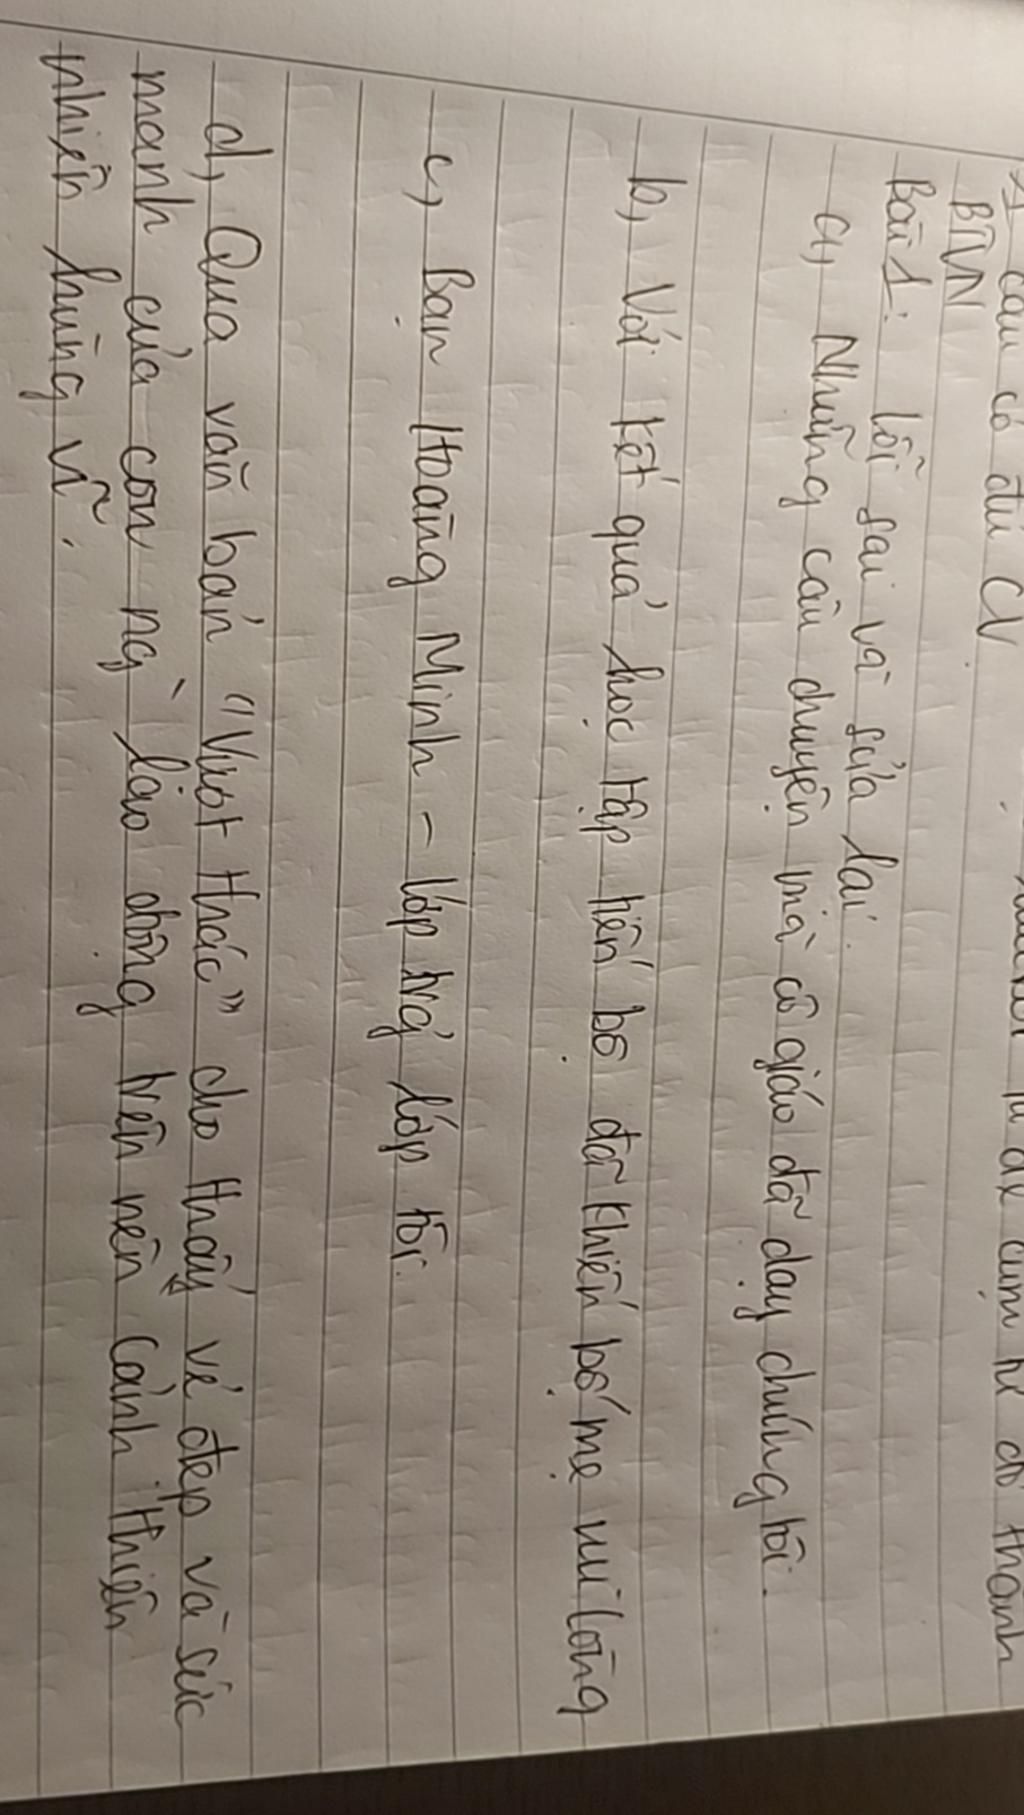 câu có đủ CN
BTVN
Bài 1: lỗi sai và sửa lại.
a, Những câu chuyện mà cô giáo đã dạy chúng tôi.
b, Với kết quả học tập tiến bộ đã khiến bố mẹ vui lòng
c, Bạn Hoàng Minh - lớp trg' lớp tôi.
d, Qua văn bản "Vượt thác" cho thấy vẻ đẹp và sức
mạnh của con ng` lao động trên nền cảnh thiên
nhiên hùng vĩ.